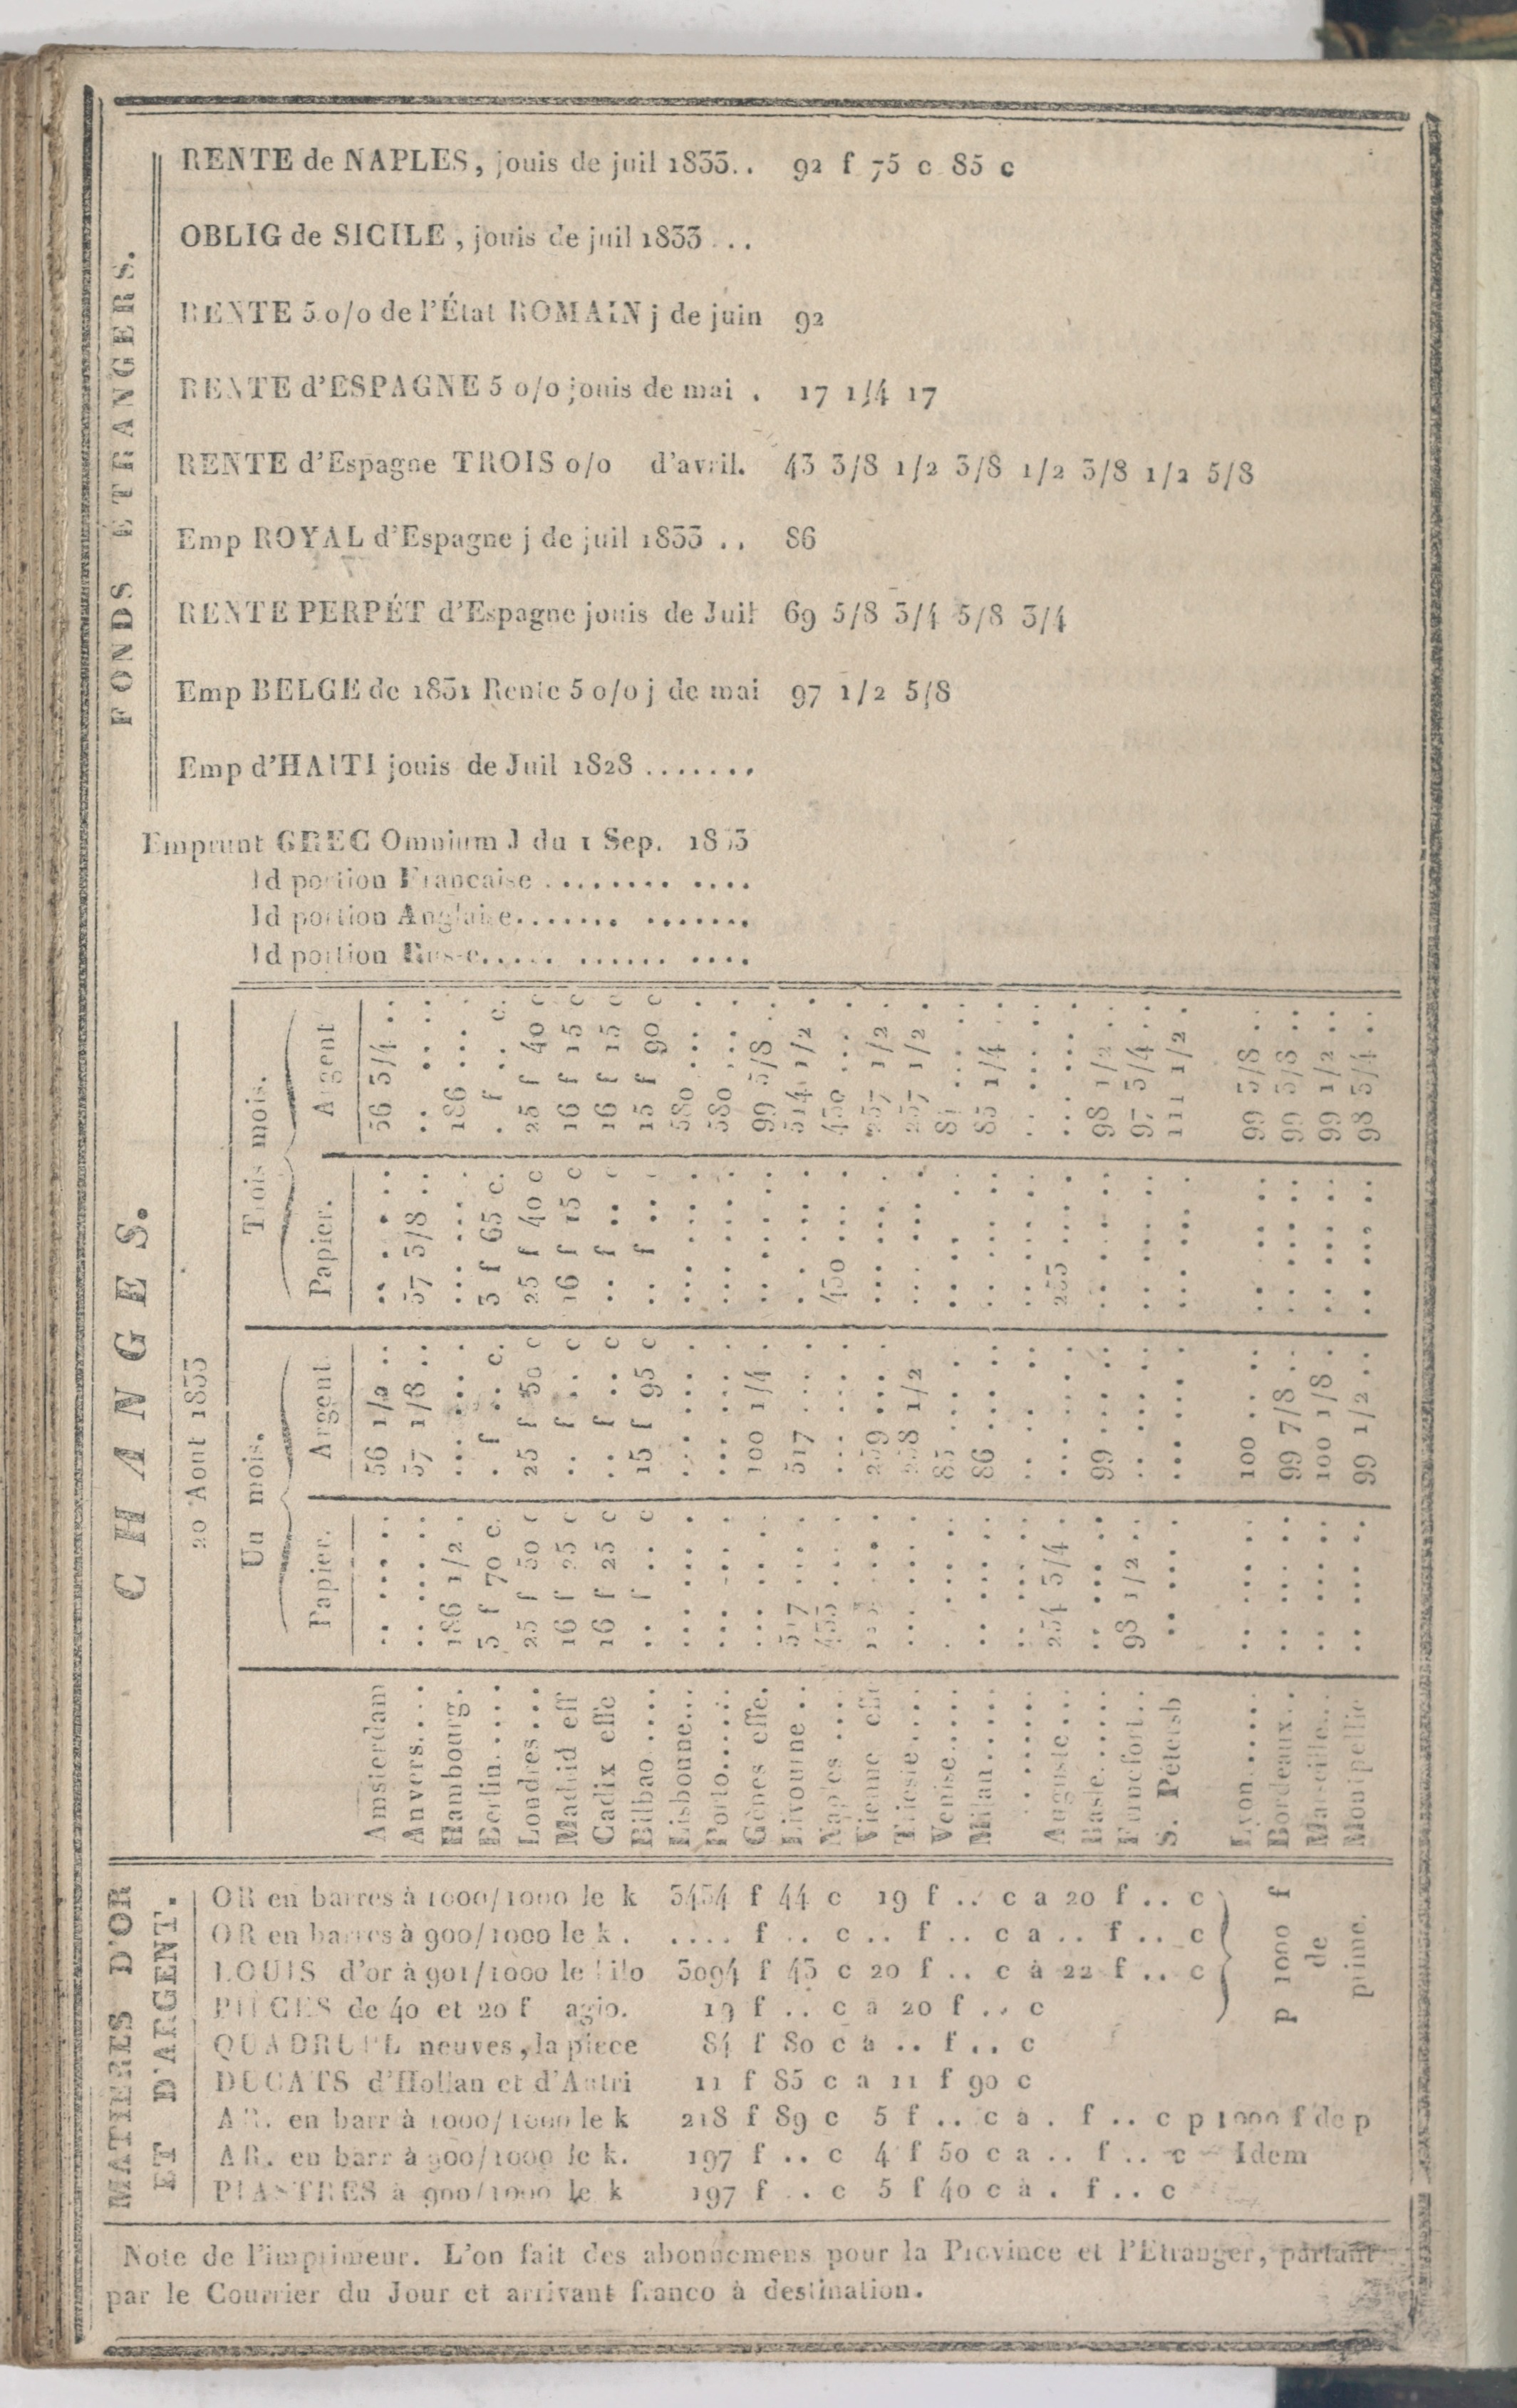 FONDS ÉTRANGERS.
RENTE de NAPLES, jouis de juil 1833.. 92 f 75 c 85 c
OBLIG de SICILE, jouis de juil 1833 ...
RENTE 5 o/o de l'État ROMAIN j de juin 92
RENTE d'ESPAGNE 5 o/o jouis de mai . 17 1/4 17
RENTE d'Espagne TROIS o/o d'avril. 43 3/8 1/2 3/8 1/2 3/8 1/2 5/8
Emp ROYAL d'Espagne j de juil 1833 .. 86
RENTE PERPÉT d'Espagne jouis de Juil 69 5/8 3/4 5/8 3/4
Emp BELGE de 1831 Rente 5 o/o j de mai 97 1/2 5/8
Emp d'HAITI jouis de Juil 1828 .......
Emprunt GREC Omnium J du 1 Sep. 1833
Id portion Francaise ........ ....
Id portion Anglaise....... .......
Id portion Russe..... ...... ....
CHANGES.
20 Aout 1833
Un mois. Trois mois.
Papier. Argent. Papier. Argent
Amsterdam .. .... .. 56 1/2 .. .. .... .. 56 3/4 ..
Anvers.... .. .... .. 57 1/8 .. 57 3/8 .. .. .... ..
Hambourg. 186 1/2 . ... .... . ... .... . 186 .... .
Berlin..... 3 f 70 c. . f .. c. 3 f 65 c. . f .. c.
Londres.... 25 f 50 c 25 f 50 c 25 f 40 c 25 f 40 c
Madrid eff 16 f 25 c .. f .. c 16 f 15 c 16 f 15 c
Cadix effe 16 f 25 c .. f .. c .. f .. c 16 f 15 c
Bilbao..... .. f .. c 15 f 95 c .. f .. c 15 f 90 c
Lisbonne... ... .... . ... .... . ... .... . 580 .... .
Porto...... ... .... . ... .... . ... .... . 580 .... .
Gènes effe. ... .... . 100 1/4 . .. .... . 99 5/8 . .
Livourne .. 517 .... . 517 .... . .. .... . 514 1/2 .
Naples .... 435 .... . ... .... . 430 .... . 430 .... .
Vienne effe .... . 259 .... . ... .... . 257 1/2 .
Trieste.... ... .... . 258 1/2 ... .... . 257 1/2 .
Venise..... . .... .. 85 .... . .. .... ..
Milan...... .. .... .. 86 .... .. .. .... .. 85 1/4 ..
Auguste... 254 3/4 . ... .... . 255 .... . ... .... .
Basle...... .. .... .. 99 .... .. .. .... .. 98 1/2 ..
Francfort.. 98 1/2 .. .. .... .. .. .... .. 97 3/4 ..
S. Pétersb .. .... . ... .... . ... .... . 111 1/2 .
Lyon...... .. .... .. 100 .. .. .. .... .. 99 5/8 ..
Bordeaux.. .. .... .. 99 7/8 .. .. .... .. 99 5/8 ..
Marseille... .. .... .. 100 1/8 . .. .... .. 99 1/2 ..
Montpellie .. .... .. 99 1/2 .. .. .... .. 98 3/4 ..
MATIERES D'OR ET D'ARGENT.
OR en barres à 1000/1000 le k 3434 f 44 c 19 f .. c a 20 f .. c
OR en barres à 900/1000 le k . .... f .. c .. f .. c a .. f .. c
LOUIS d'or à 901/1000 le kilo 3094 f 43 c 20 f .. c à 22 f .. c
PIECES de 40 et 20 f agio. 19 f .. c a 20 f .. c
p 1000 f de prime.
QUADRUPL neuves, la piece 84 f 80 c à .. f .. c
DUCATS d'Hollan et d'Autri 11 f 85 c a 11 f 90 c
AR. en barr à 1000/1000 le k 218 f 89 c 5 f .. c a . f .. c p 1000 f de p
AR. en barr à 900/1000 le k. 197 f .. c 4 f 50 c a .. f .. c - Idem
PIASTRES à 900/1000 le k 197 f .. c 5 f 40 c à . f .. c
Note de l'imprimeur. L'on fait des abonnemens pour la Province et l'Etranger, partant
par le Courrier du Jour et arrivant franco à destination.